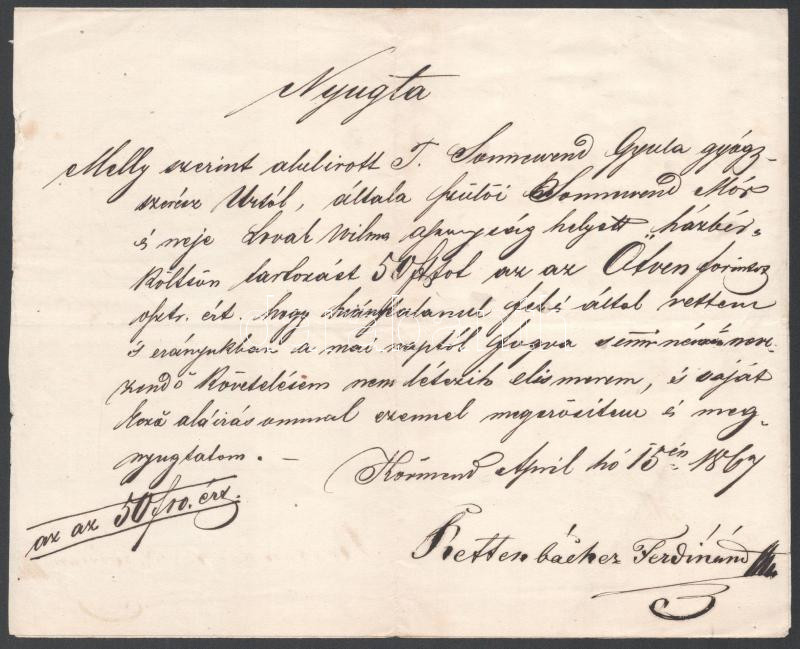 Nyugta
Melly szerint alulirott T. Sonnewend Gyula gyógy-
szerész Urtól, általa szülői Sonnewend Mór
és neje Lovak Wilma helyett házbér-
költsön tartozást 50 ftot az az Ötven forintot
osztr. ért. hogy hiánytalanul felvettem
és irányukban a mai naptól fogva semmi néven ne-
zendő követelésem nem létezik elismerem, és saját
kezű aláirásommal ezennel megerősitem és meg-
nyugtatom. –
Körmend April hó 15én 1867
az az 50 fro. ért.
Rettenbacher Ferdinánd